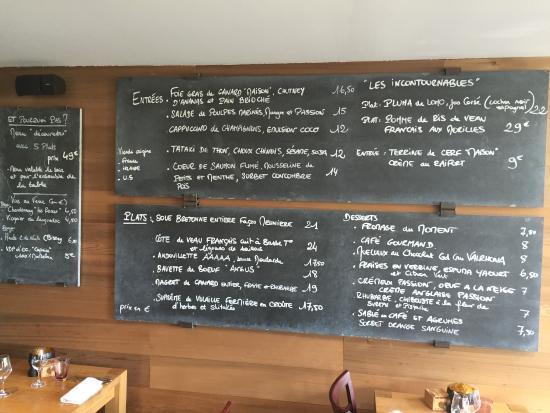 ET POURQUOI PAS ?
Menu "découverte"
aux 5 Plats
prix 49€
Menu valable le soir
et pour l'ensemble de
la table
Vins au verre
"Chardonnay" 4,50
6,50
5€
ENTRÉES: FOIE GRAS DE CANARD "MAISON", CHUTNEY 16,50
D'ANANAS ET PAIN BRIOCHÉ
. SALADE DE POULPES MARINÉS, Mangue et PASSION 15
. CAPPUCCINO DE CHAMPIGNONS, EMULSION COCO 12
. TATAKI DE THON, CHOUX CHINOIS, SÉSAME, SOJA 12
. COEUR DE SAUMON FUMÉ, MOUSSELINE DE 14
PETITS ET MENTHE, SORBET CONCOMBRE
POIS
Viande origine
. France
. U.S
"LES INCONTOURNABLES"
Plat: PLUMA DE LOMO, jus Corsé (cochon noir espagnol) 22€
Plat: POMME DE RIS DE VEAU
FRANÇAIS AUX MORILLES 29€
ENTRÉE: TERRINE DE CERF "MAISON"
CRÈME AU RAIFORT 9€
PLATS: . SOLE BRETONNE ENTIÈRE FAÇON MEUNIÈRE 21
. CÔTE DE VEAU FRANÇAIS CUIT À BASSE T° 24
et légumes de saison
. ANDOUILLETTE AAAAA, sauce Moutarde 17,50
. BAVETTE DE BOEUF "ANGUS" 18
. MAGRET DE CANARD ENTIER, 19
. SUPRÊME DE VOLAILLE FERMIÈRE EN CROÛTE 17,50
d'herbes et Shiitakés
prix en €
DESSERTS
. FROMAGE DU MOMENT 7,50
. CAFÉ GOURMAND 8
. MOELLEUX AU CHOCOLAT VALRHONA 8
. FRAISES EN VERRINE, ESPUMA YAOURT 6,50
et Citron Vert
. CRÉMEUX PASSION, OEUF A LA NEIGE 7
CRÈME ANGLAISE PASSION
. RHUBARBE, CHIBOUSTE à la fleur de 7
SUREAU et Pistache
. SABLÉ AU CAFÉ ET AGRUMES 7
SORBET ORANGE SANGUINE 7,50